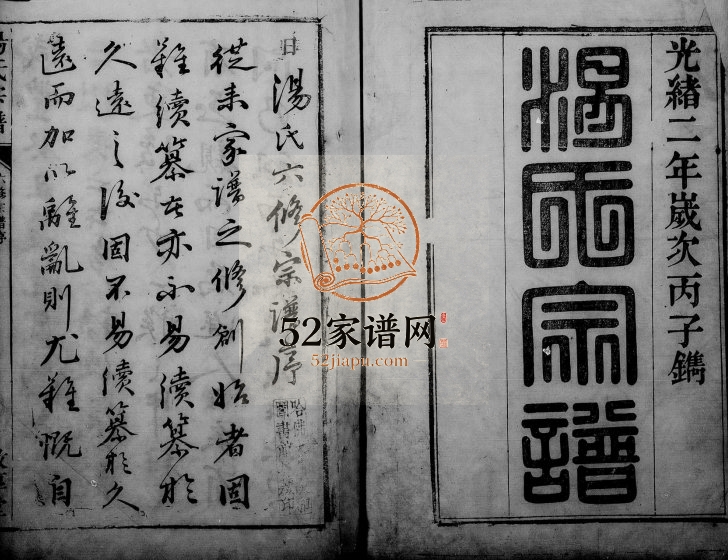 光緒二年歲次丙子鐫
湯氏宗譜
湯氏六修宗譜序
從來家譜之修創始者固
難續纂者亦不易續纂於
久遠之後固不易續纂於久
遠而加以離亂則尤難慨自
52家谱网
52jiapu.com